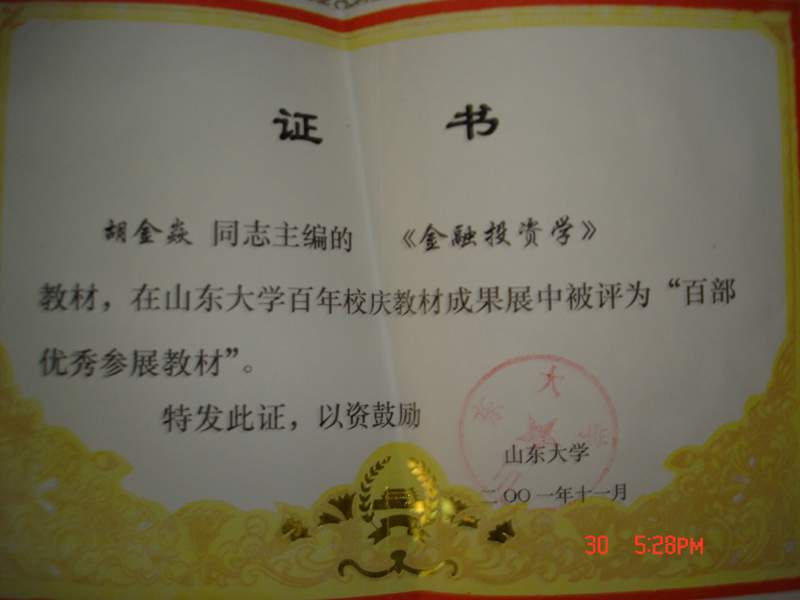 证 书
胡金焱 同志主编的 《金融投资学》
教材，在山东大学百年校庆教材成果展中被评为“百部
优秀参展教材”。
特发此证，以资鼓励
山东大学
二〇〇一年十一月
30 5:28PM